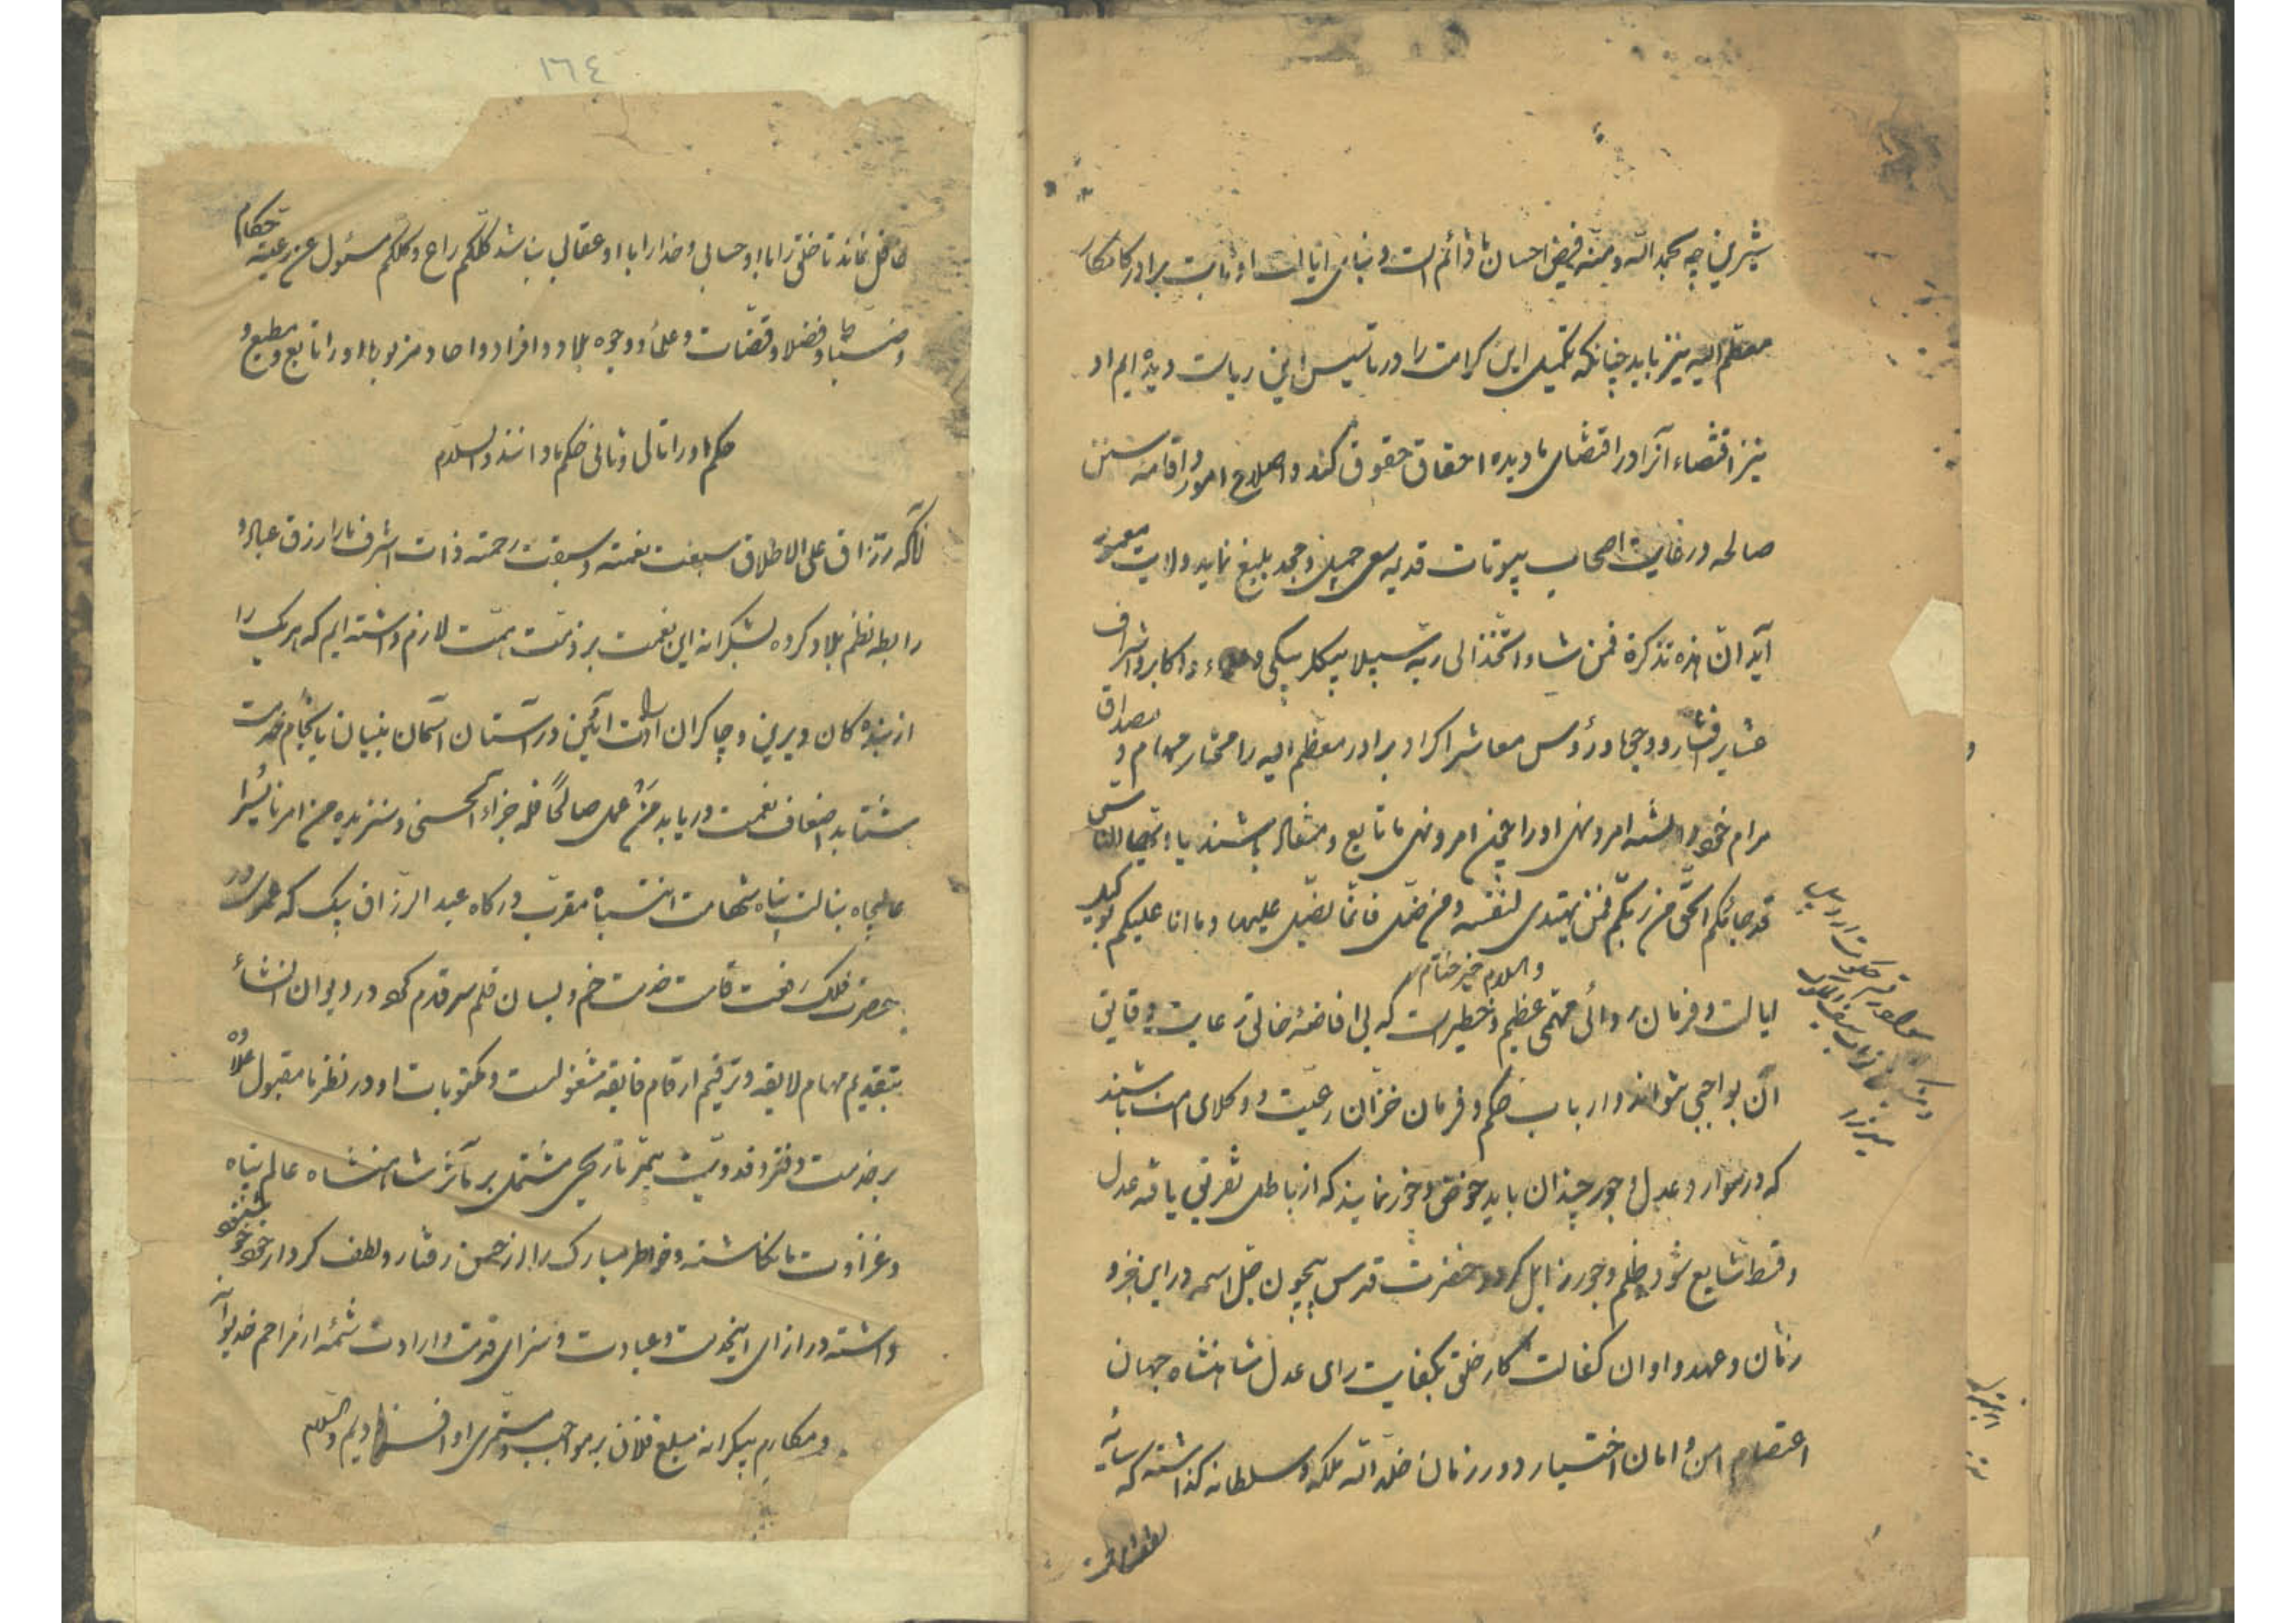 شیرین چه بحمد الله و منه فیض احسان ما دائم است و بنای ایالت او ثابت برادر کامکار
معظم الیه نیز باید چنانکه تکمیل این کرامت را در تاسیس این ریاست دیده ایم او
نیز اقتضاء آنرا در اقتضای ما دیده احقاق حقوق کند و اصلاح امور و اقامه سنن
صالحه و رعایت اصحاب بیوتات قدیمه سعی جمیل و جهد بلیغ نماید ولایت معمور
آید ان هذه تذکرة فمن شاء اتخذ الی ربه سبیلا بیکلربیکی و و اکابر و اشراف
عشایر افشار و وجها و رؤس معاشر اکراد برادر معظم الیه را مختار مهام و
مرام خود دانسته امر و نهی او را عین امر و نهی ما تابع و منقاد باشند بمصداق یا ایها الناس
قد جائکم الحق من ربکم فمن یهتدی لنفسه و من ضل فانما یضل علیها و ما انا علیکم بوکیل
والسلام خیر ختام
ایالت و فرمان روائی مهمی عظیم و خطیرست که بی افاضهٔ خالق رعایت دقایق
آن بواجبی نتوانند و ارباب حکم و فرمان خزان رعیت و وکلای امت باشند
که در موارد عدل و جور چندان باید خوض و غور نمایند که از باطل تفریق یافته عدل
و قسط شایع شود و ظلم و جور زایل کردد حضرت قدس بیچون جل اسمه در این جزو
زمان و عهد و اوان کفالت کار خلق بکفایت رای عدل شاهنشاه جهان
اعتصام امن و امان اختیار دور زمان خلد الله ملکه و سلطانه کذاشته که سایه
۱٦٤
غافل نماند تا خلق را با او حسابی و خدا را با او عقابی نباشد کلکم راع و کلکم مسئول عن رعیته حکام
و ضباط و فضلا و قضات و علما و وجوه بلاد و افراد و احاد مزبور باید او را تابع و مطیع و
حکم او را تالی و ثانی حکم ما دانند والسلام
آنکه رزاق علی الاطلاق سبغت نعمته و سبقت رحمته ذات اشرف ما را رزق عباد و
رابطه نظم بلاد کرده بشکرانه این نعمت بر ذمت همت لازم داشته ایم که هر یک را
از بنده کان دیرین و چاکران ارادت آئین در آستان آسمان بنیان بانجام خدمت
شتابد اضعاف نعمت دریابد من عمل صالحا فله جزاء الحسنی و سنزیده من امرنا یسرا
عالیجاه بنالت پناه شهامت انتباه مقرب درکاه عبد الرزاق بیک که عمری در
حضرت فلک رفعت قامت خدمت خم و لسان قلم سر قدم کرد در دیوان انشاء
بتقدیم مهام لایقه و ترقیم ارقام فایقه مشغولست و مکتوبات او در نظر ما مقبول علاوه
بر خدمت دفتر و فدویت تاریخی مشتمل بر مآثر شاهنشاه عالم پناه
و غزوات ما نکاشته و خاطر مبارک را از حسن رفتار و لطف کردار خود خوشنود
داشته در ازای اینخدمت و عبادت و سزای قدمت و ارادت شمهٔ از مراحم خدیوانه
و مکارم بیکرانه مبلغ فلان بر مواجب و مستمری او افزودیم والسلام